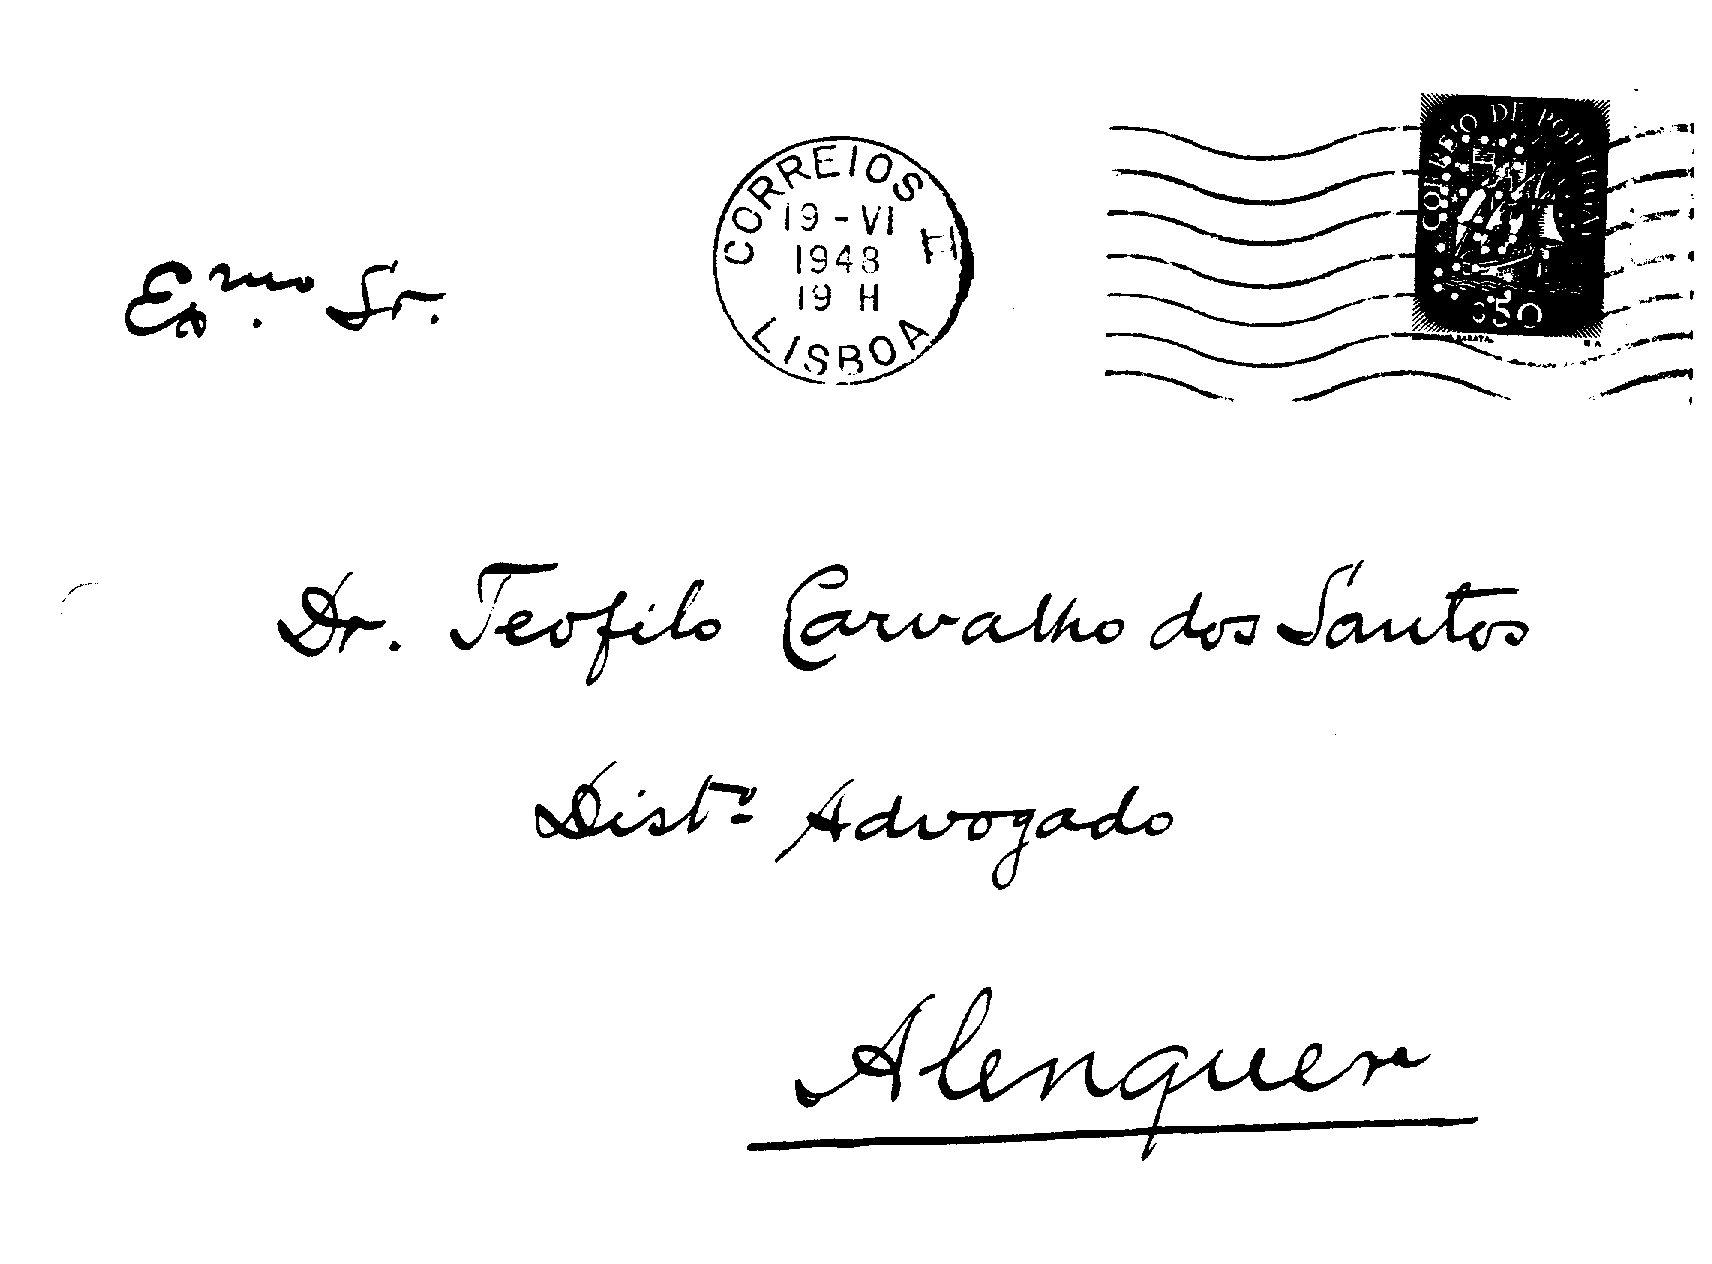 CORREIO DE PORTUGAL
$50
CORREIOS
19 - VI
1948
19 H
LISBOA
Ex.mo Sr.
Dr. Teofilo Carvalho dos Santos
Dist.º Advogado
Alenquer